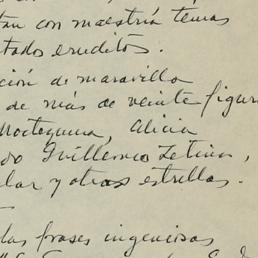 tan con maestría temas
tados eruditos.
ción de maravilla
de más de veinte figur
Moctezuma, Alicia
do Guillermo Zetina,
lar y otras estrellas.
las frases ingeniosas